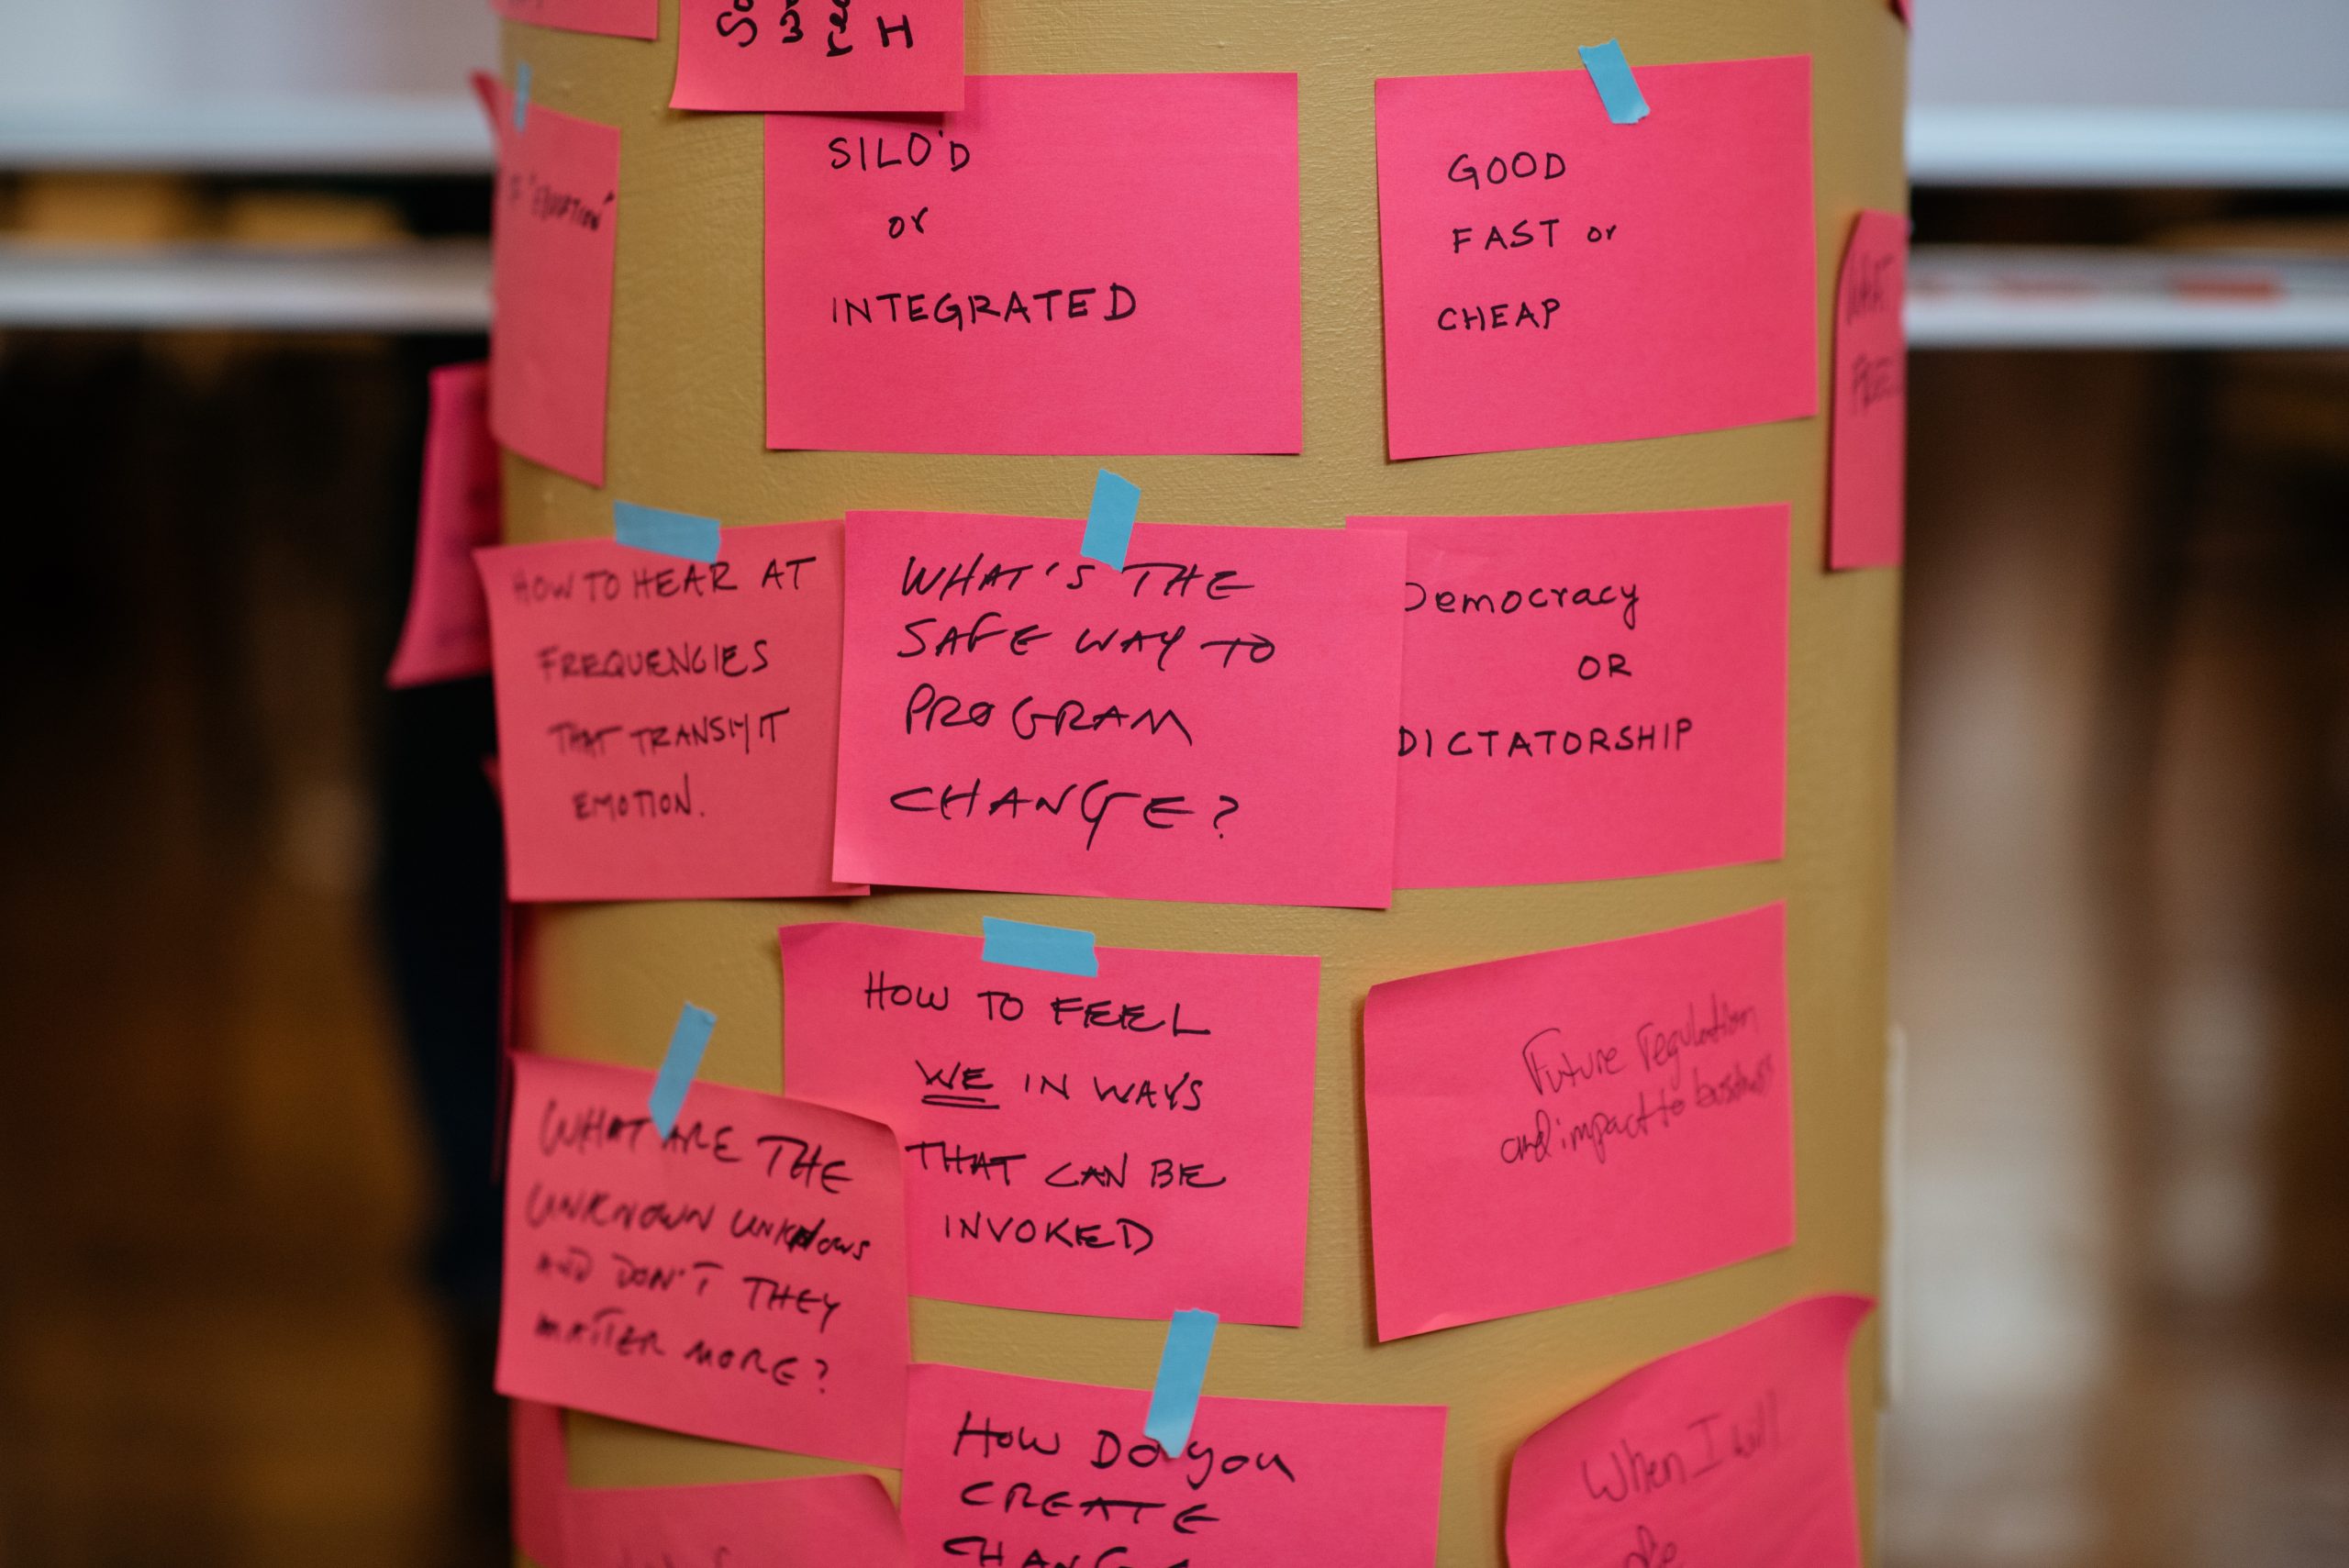 H
SILO'D
or
INTEGRATED
GOOD
FAST or
CHEAP
HOW TO HEAR AT
FREQUENCIES
THAT TRANSMIT
EMOTION.
WHAT'S THE
SAFE WAY TO
PROGRAM
CHANGE?
Democracy
OR
DICTATORSHIP
HOW TO FEEL
WE IN WAYS
THAT CAN BE
INVOKED
Future regulation
and impact to business
WHAT ARE THE
UNKNOWN UNKNOWS
AND DON'T THEY
MATTER MORE?
HOW DO you
CREATE
CHANGE
When I will
die